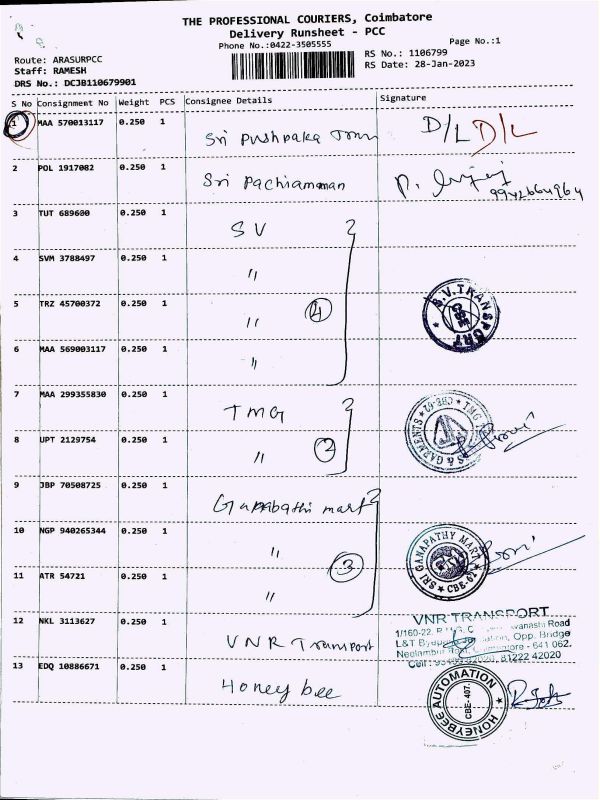 THE PROFESSIONAL COURIERS, Coimbatore
Delivery Runsheet - PCC
Phone No.:0422-3505555
Page No.:1
Route: ARASURPCC
Staff: RAMESH
DRS No.: DCJB110679901
RS No.: 1106799
RS Date: 28-Jan-2023
S No Consignment No Weight PCS Consignee Details Signature
1 MAA 570013117 0.250 1 Sri Pushpaka D/L D/L
2 POL 1917082 0.250 1 Sri Pachiamman P. 9942664964
3 TUT 689600 0.250 1 SV
4 SVM 3788497 0.250 1 "
5 TRZ 45700372 0.250 1 " 4 S.V.TRANSPORT
6 MAA 569003117 0.250 1 "
7 MAA 299355830 0.250 1 TMG TMG & GARMENTS CBE-62
8 UPT 2129754 0.250 1 " 2
9 JBP 70508725 0.250 1 Ganabathi mart
10 NGP 940265344 0.250 1 " SRI GANAPATHY MART CBE-62
11 ATR 54721 0.250 1 " 3
12 NKL 3113627 0.250 1 VNR Transport
VNR TRANSPORT
1/160-22, Road
L&T Opp. Bridge
641 062.
Cell : 81222 42020
13 EDQ 10886671 0.250 1 Honey bee HONEYBEE AUTOMATION CBE-407.